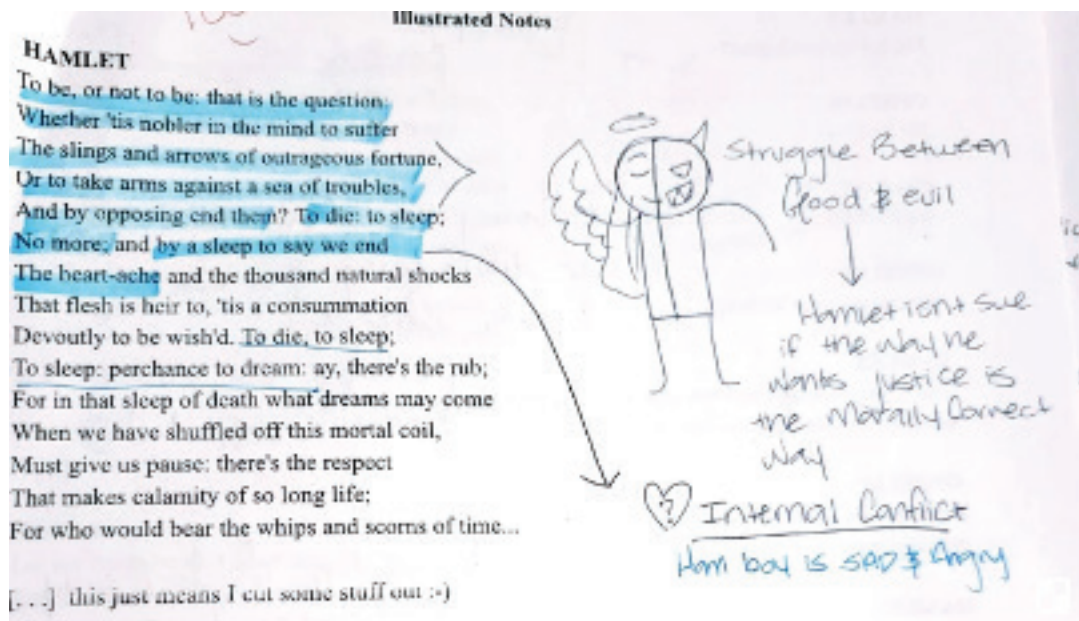 Illustrated Notes
HAMLET
To be, or not to be: that is the question:
Whether 'tis nobler in the mind to suffer
The slings and arrows of outrageous fortune,
Or to take arms against a sea of troubles,
And by opposing end them? To die: to sleep;
No more; and by a sleep to say we end
The heart-ache and the thousand natural shocks
That flesh is heir to, 'tis a consummation
Devoutly to be wish'd. To die, to sleep;
To sleep: perchance to dream: ay, there's the rub;
For in that sleep of death what dreams may come
When we have shuffled off this mortal coil,
Must give us pause: there's the respect
That makes calamity of so long life;
For who would bear the whips and scorns of time...
[. . .] this just means I cut some stuff out :-)
Struggle Between
Good & evil
Hamlet isnt sue
if the way he
wants justice is
the Morally Correct
way
? Internal Conflict
Ham boy is SAD & Angry